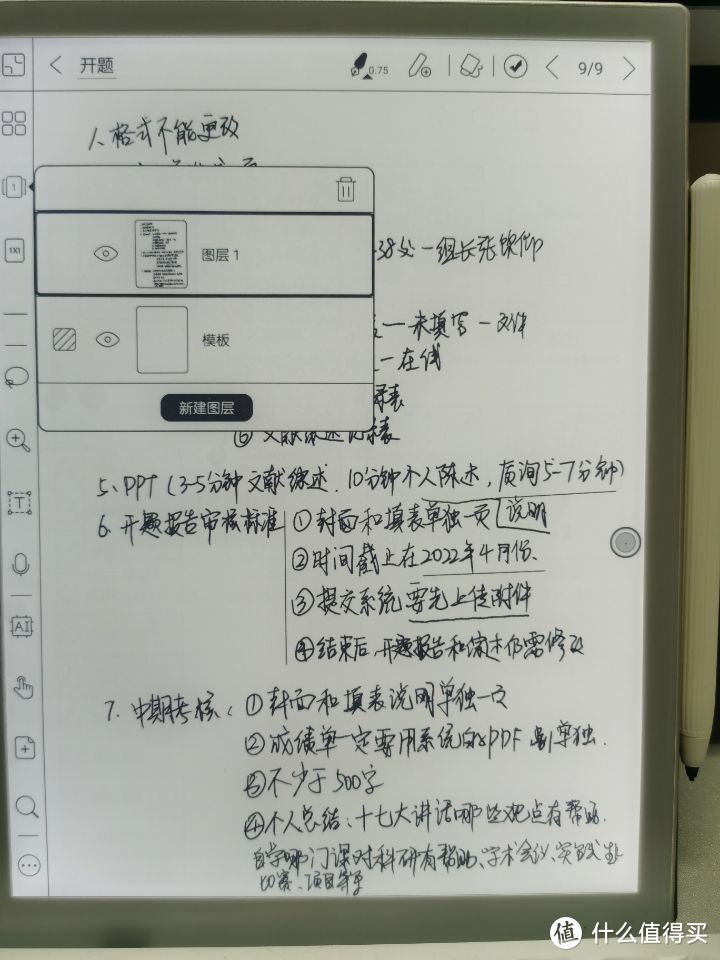 开题
0.75
9/9
1、格式不能更改
1
1X1
图层 1
一组长张
模板
一未填写一文件
一在线
新建图层
录表
⑥ 文献综述记录表
5、PPT（3-5分钟文献综述，10分钟个人陈述，质询5-7分钟）
6、开题报告审核标准 ①封面和填表单独一页 说明
②时间截止在2022年4月份、
T
③提交系统要先上传附件
AI
④结束后，开题报告和 仍需修改
7、中期考核： ①封面和填表说明单独一页
②成绩单一定要用系统的PDF 单独
③不少于500字
④个人总结：十七大讲话哪些观点有帮助、
自学哪门课对科研有帮助、学术会议、
比赛、项目等
值 什么值得买